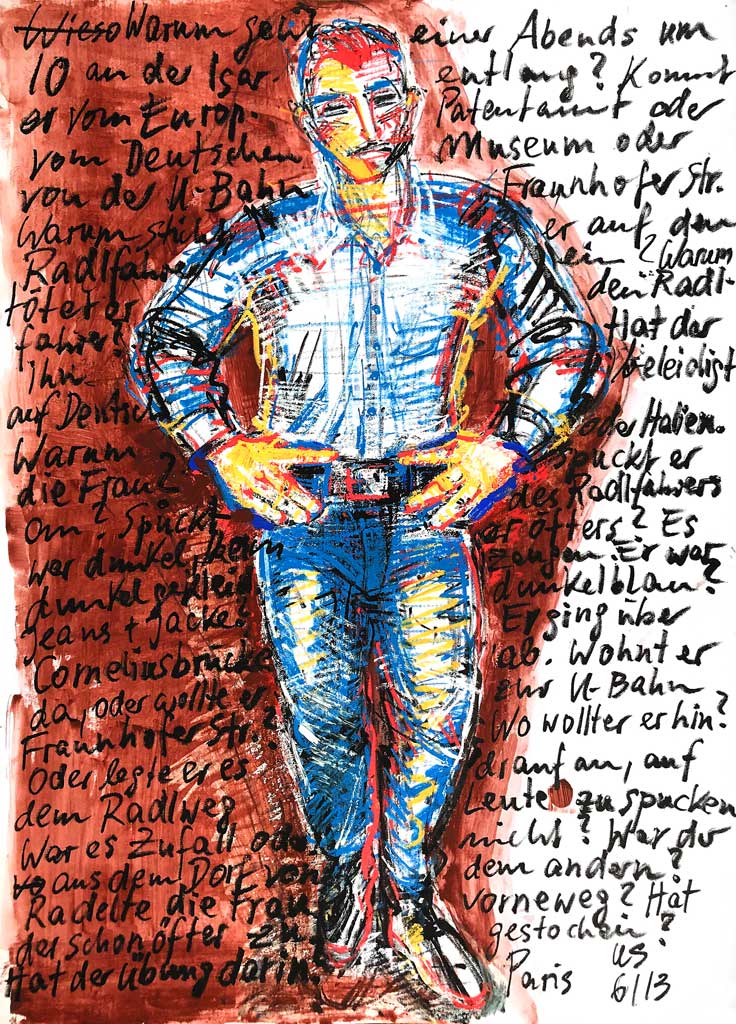 Wieso Warum geht einer Abends um
10 an der Isar. entlang? Kommt
er vom Europ. Patentamt oder
vom Deutschen Museum oder
von der U-Bahn Fraunhoferstr.
Warum sticht er auf den
Radlfahrer ein? Warum
tötet er den Radl-
fahrer? Hat der
ihn beleidigt
auf Deutsch oder Italien.
Warum spuckt er
die Frau des Radlfahrers
an? Spuckt er öfters? Es
war dunkel, Zeugen. Er war
dunkel gekleid dunkelblau?
Jeans + Jacke? Er ging über
Corneliusbrücke ab. Wohnt er
da, oder wollte er zur U-Bahn
Fraunhofer Str.? Wo wollter er hin?
Oder legte er es drauf an, auf
dem Radlweg Leute zu spucken
War es Zufall oder nicht? War der
aus dem Dorf von dem andern?
Radelte die Frau vorneweg? Hat
der schon öfter zu gestochen?
Hat der Übung darin? Paris US
6/13